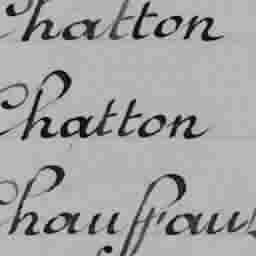 Chatton
Chatton
Chauffaus